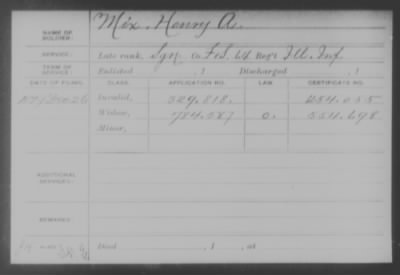 NAME OF SOLDIER: Mix, Henry A.
SERVICE: Late rank, Sgn. Co. F&S, 64 Reg't Ill. Inf.
TERM OF SERVICE: Enlisted , 1 Discharged , 1
DATE OF FILING. CLASS. APPLICATION NO. LAW. CERTIFICATE NO.
Invalid, 329.818.
Widow, 784.587 O. 554.698
Minor,
ADDITIONAL SERVICES:
REMARKS:
Died , 1 , at